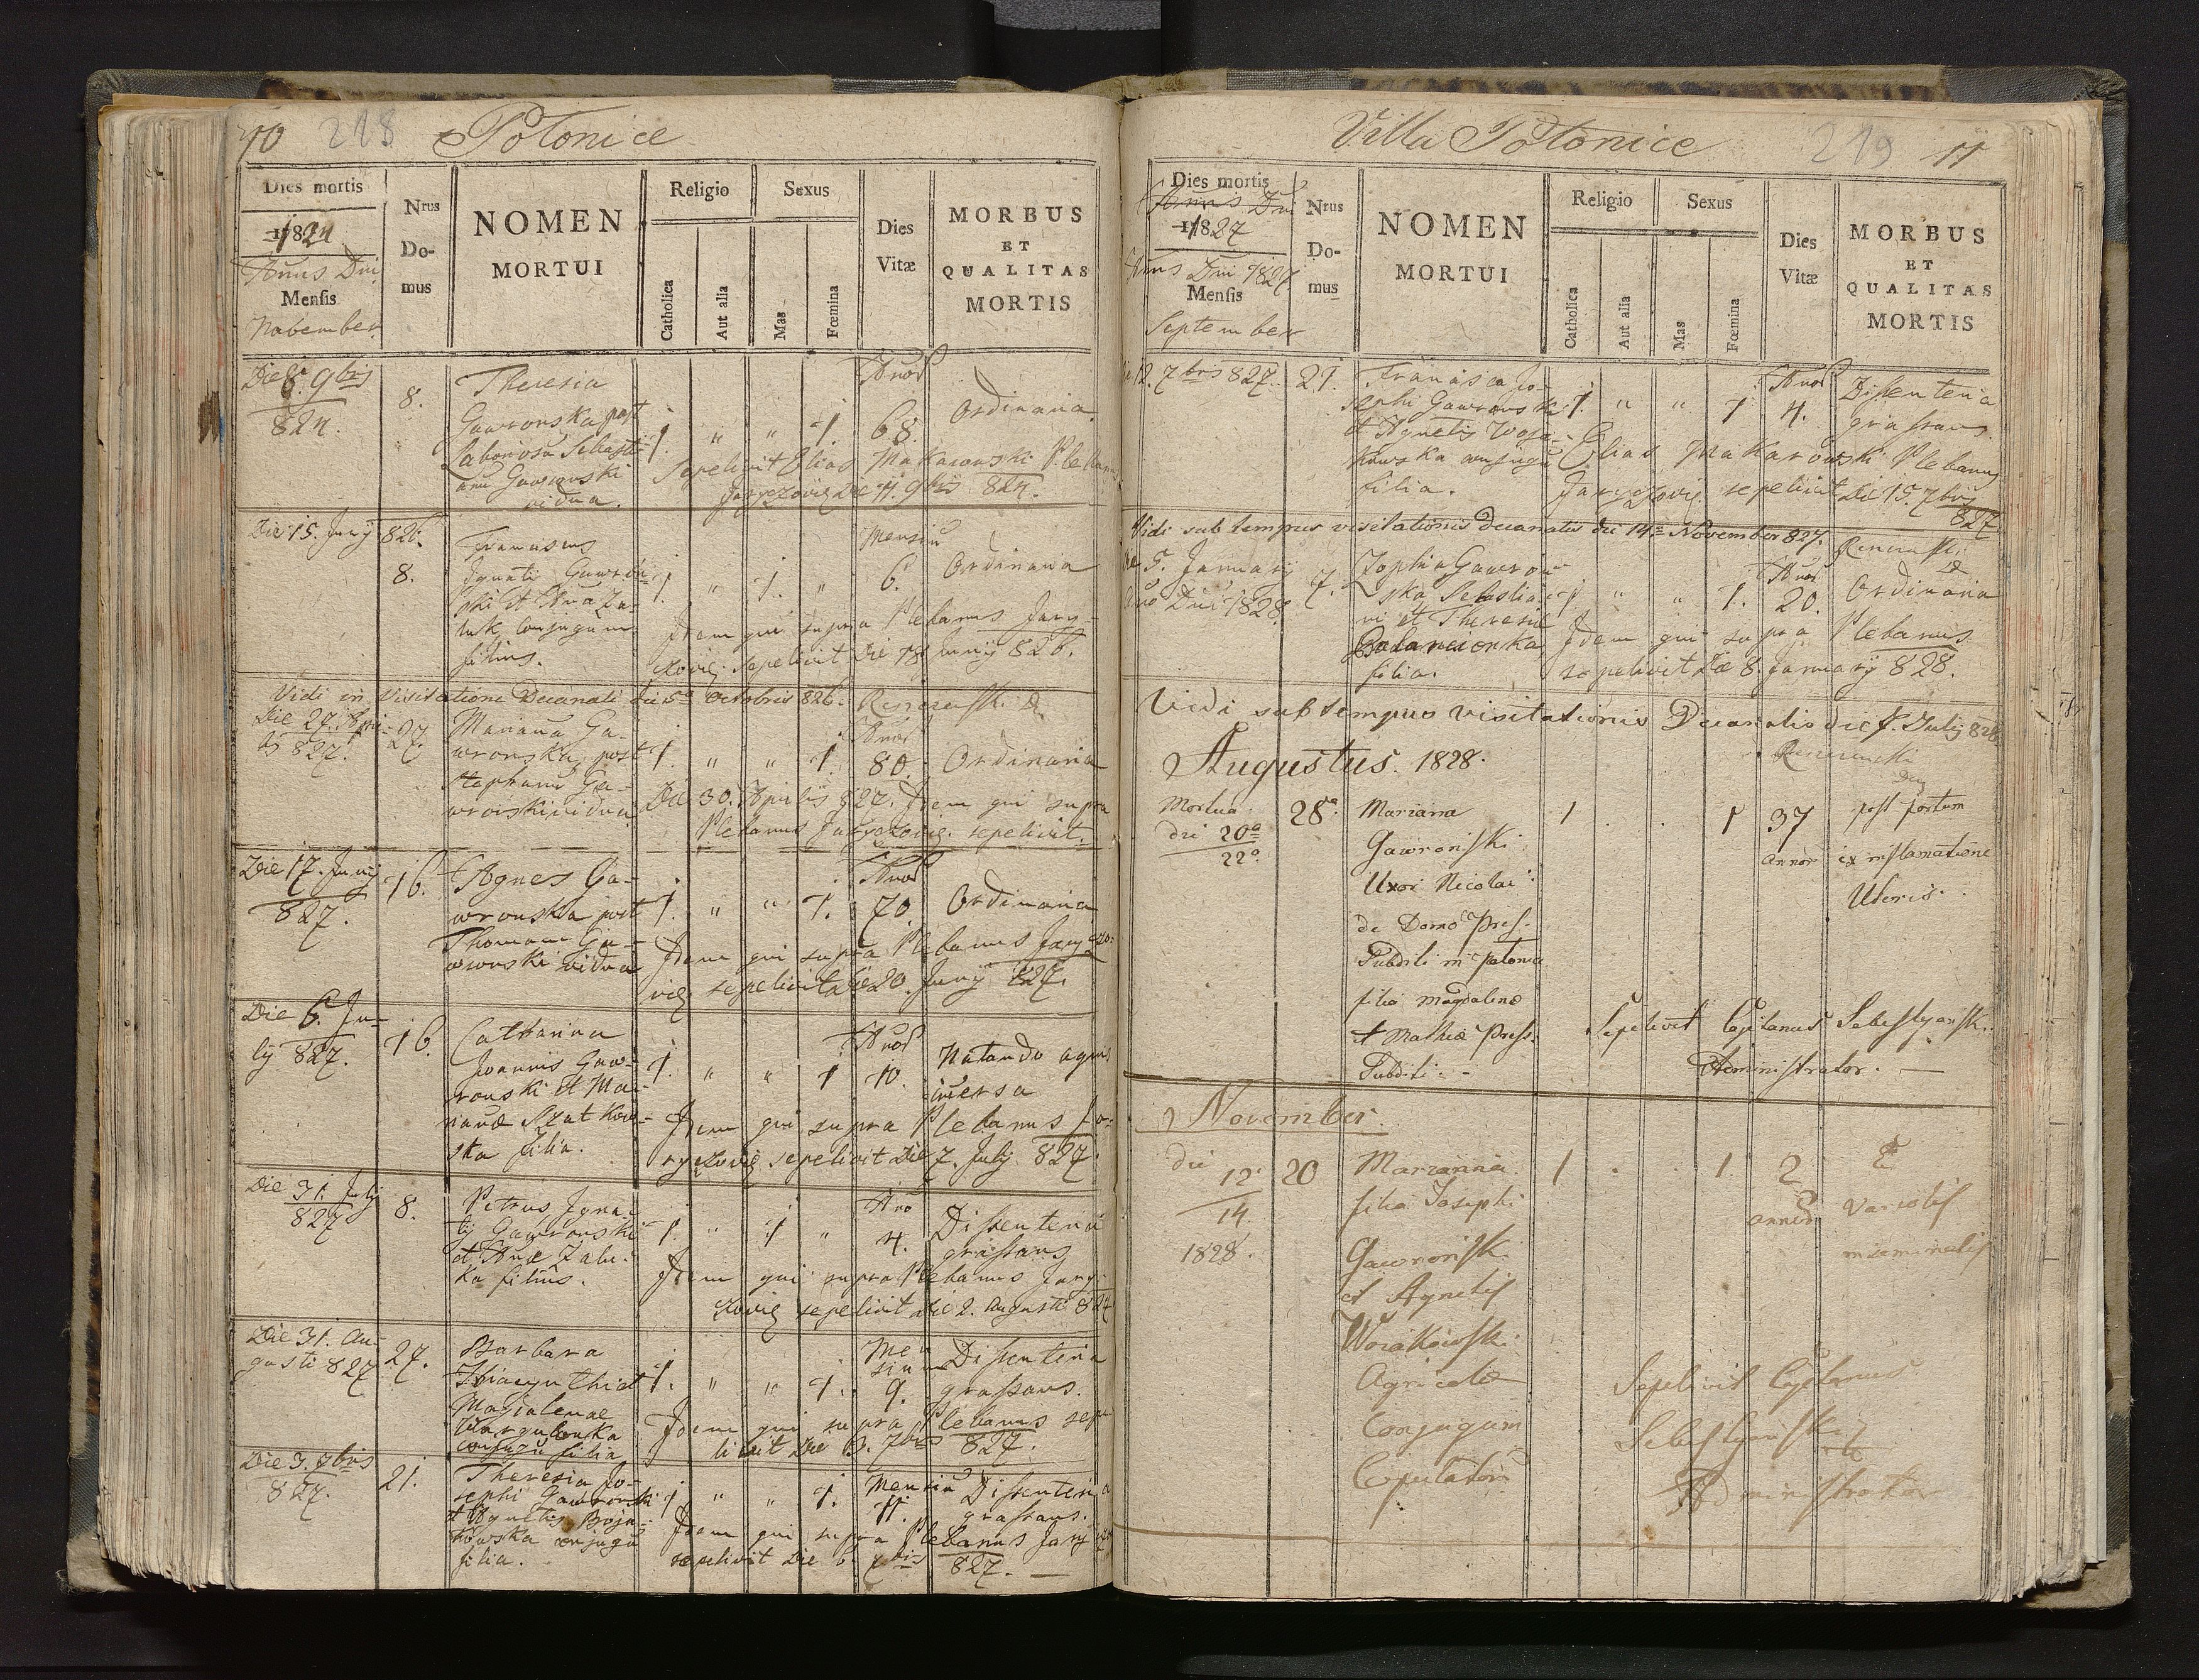 70 218 Potonice
Dies mortis
1824
Anno Dni
Mensis
November
Nrus
Do-
mus
NOMEN
MORTUI
Religio
Catholica
Aut alia
Sexus
Mas
Fœmina
Dies
Vitæ
MORBUS
ET
QUALITAS
MORTIS
Die 8. 9bris
824.
8.
Theresia
Gawronska post
Laboriosu Sebasti-
anu Gawronski
vidua.
1. " " 1.
Anor
68.
Ordinaria
Sepelivit Elias Makarowski Plebanus
Jaryczovie. Die 11. 9bris 824.
Die 15. Junij 826.
8.
Franciscus
Ignatii Gawron-
ski et Anna Za-
luk conjugum
filius.
1. " 1. "
Mensiu
6.
Ordinaria
Idem qui supra Plebanus Jary-
czovie. sepelivit Die 18 Junij 826.
Vidi in visitatione Decanali die 5a Octobris 826.
Die 27. Apri-
lis 827.
27.
Mariana Ga-
wronska post
Stephanu Ga-
wronski vidua
1. " " 1.
Anor
80.
Ordinaria
Die 30. Aprilis 827. Idem qui supra
Plebanus Jaryczovie. sepelivit.
Die 17. Junij
827.
16.
Agnes Ga-
wronska post
Thomam Ga-
wronski vidua
1. " " 1.
Anor
70.
Ordinaria
Idem qui supra Plebanus Jaryczo-
vie. sepelivit Die 20. Junij 827.
Die 6. Ju-
lij 827.
16.
Catharina
Joannis Gaw-
ronski et Ma-
rianæ Szatkow-
ska filia.
1. " " 1
Anor
10.
Natando aquis
imersa
Idem qui supra Plebanus Ja-
ryczovie. sepelivit Die 7. Julij 827.
Die 31. Julij
827
8.
Petrus Igna-
tij Gawronski
et Annæ Zalu-
ka filius.
1. " 1 "
Ano
4.
Dissenteria
grassans
Idem qui supra Plebanus Jary-
czovie. sepelivit Die 2. Augusti 827
Die 31. Au-
gusti 827
27.
Barbara
Hiacynthi et
Magdalenae
conjugu filia
1. " " 1.
Men
sium
9.
Dissenteria
grassans.
Idem qui supra Plebanus sepe
livit Die 3. 7bris 827.
Die 3. 7bris
827.
21.
Theresia Jo-
sephi Gawronski
et Agnetis Woja-
kowska conjugu
filia.
1 " " 1.
Mensiu
11.
Dissenteria
grassans.
Idem qui supra Plebanus Jarycz
sepelivit Die 6. 7bris 827.
Villa Potonice 219 71
Dies mortis
Annus Dni
1827
Anus Dni 1827
Mensis
September
Nrus
Do-
mus
NOMEN
MORTUI
Religio
Catholica
Aut alia
Sexus
Mas
Fœmina
Dies
Vitæ
MORBUS
ET
QUALITAS
MORTIS
12. 7bris 827.
21.
Francisca Jo-
sephi Gawronski
et Agnetis Woja-
kowska conjugu
filia.
1. " " 1
Anor
4.
Dissenteria
grassans.
Elias Makarowski Plebanus
Jaryczovie. sepelivit Die 15. 7bris
827
Vidi sub tempus visitationis Decanalis die 14a November 827.
5. Januarij
Ano Dni 1828.
7.
Zophia Gawron-
ska Sebastia-
ni et Theresiæ
filia.
1 " " 1.
Anor
20.
Ordinaria
Idem qui supra Plebanus
sepelivit Die 8. Januarij 828.
Vidi sub tempus visitationis Decanalis die Julij 828
Augustus. 1828.
Mortua
die 20a
22a
28.
Mariana
Gawronski
Uxor Nicolai
de Domo Pres.
Subditi in Potonice
filia Magdalenæ
et Mathiæ Press.
Subditi.
1 . . 1
37
annor
post partum
ex inflamatione
Uteris.
Sepelivit Capelanus Sebestyansk.
Administrator.
November.
die
12
14.
1828.
20
Marianna
filia Josephi
Gawronsk.
et Agnetis
Worakowsk.
Agricolæ
Conjugum
Copulator
1 . . 1
2
annor
E
Variolis
Sepelivit Capelanus
Sebestyansk.
Administrator